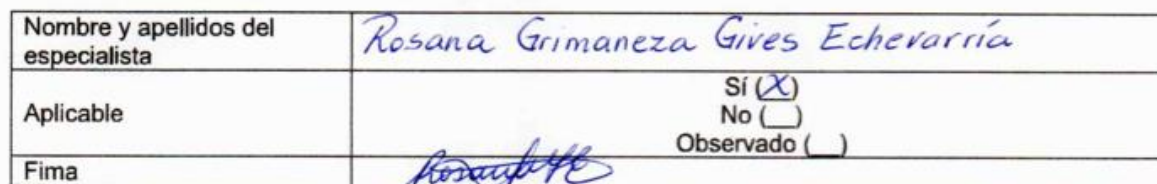 Nombre y apellidos del
especialista
Rosana Grimaneza Gives Echevarría
Aplicable
Sí (X)
No (__)
Observado (__)
Fima